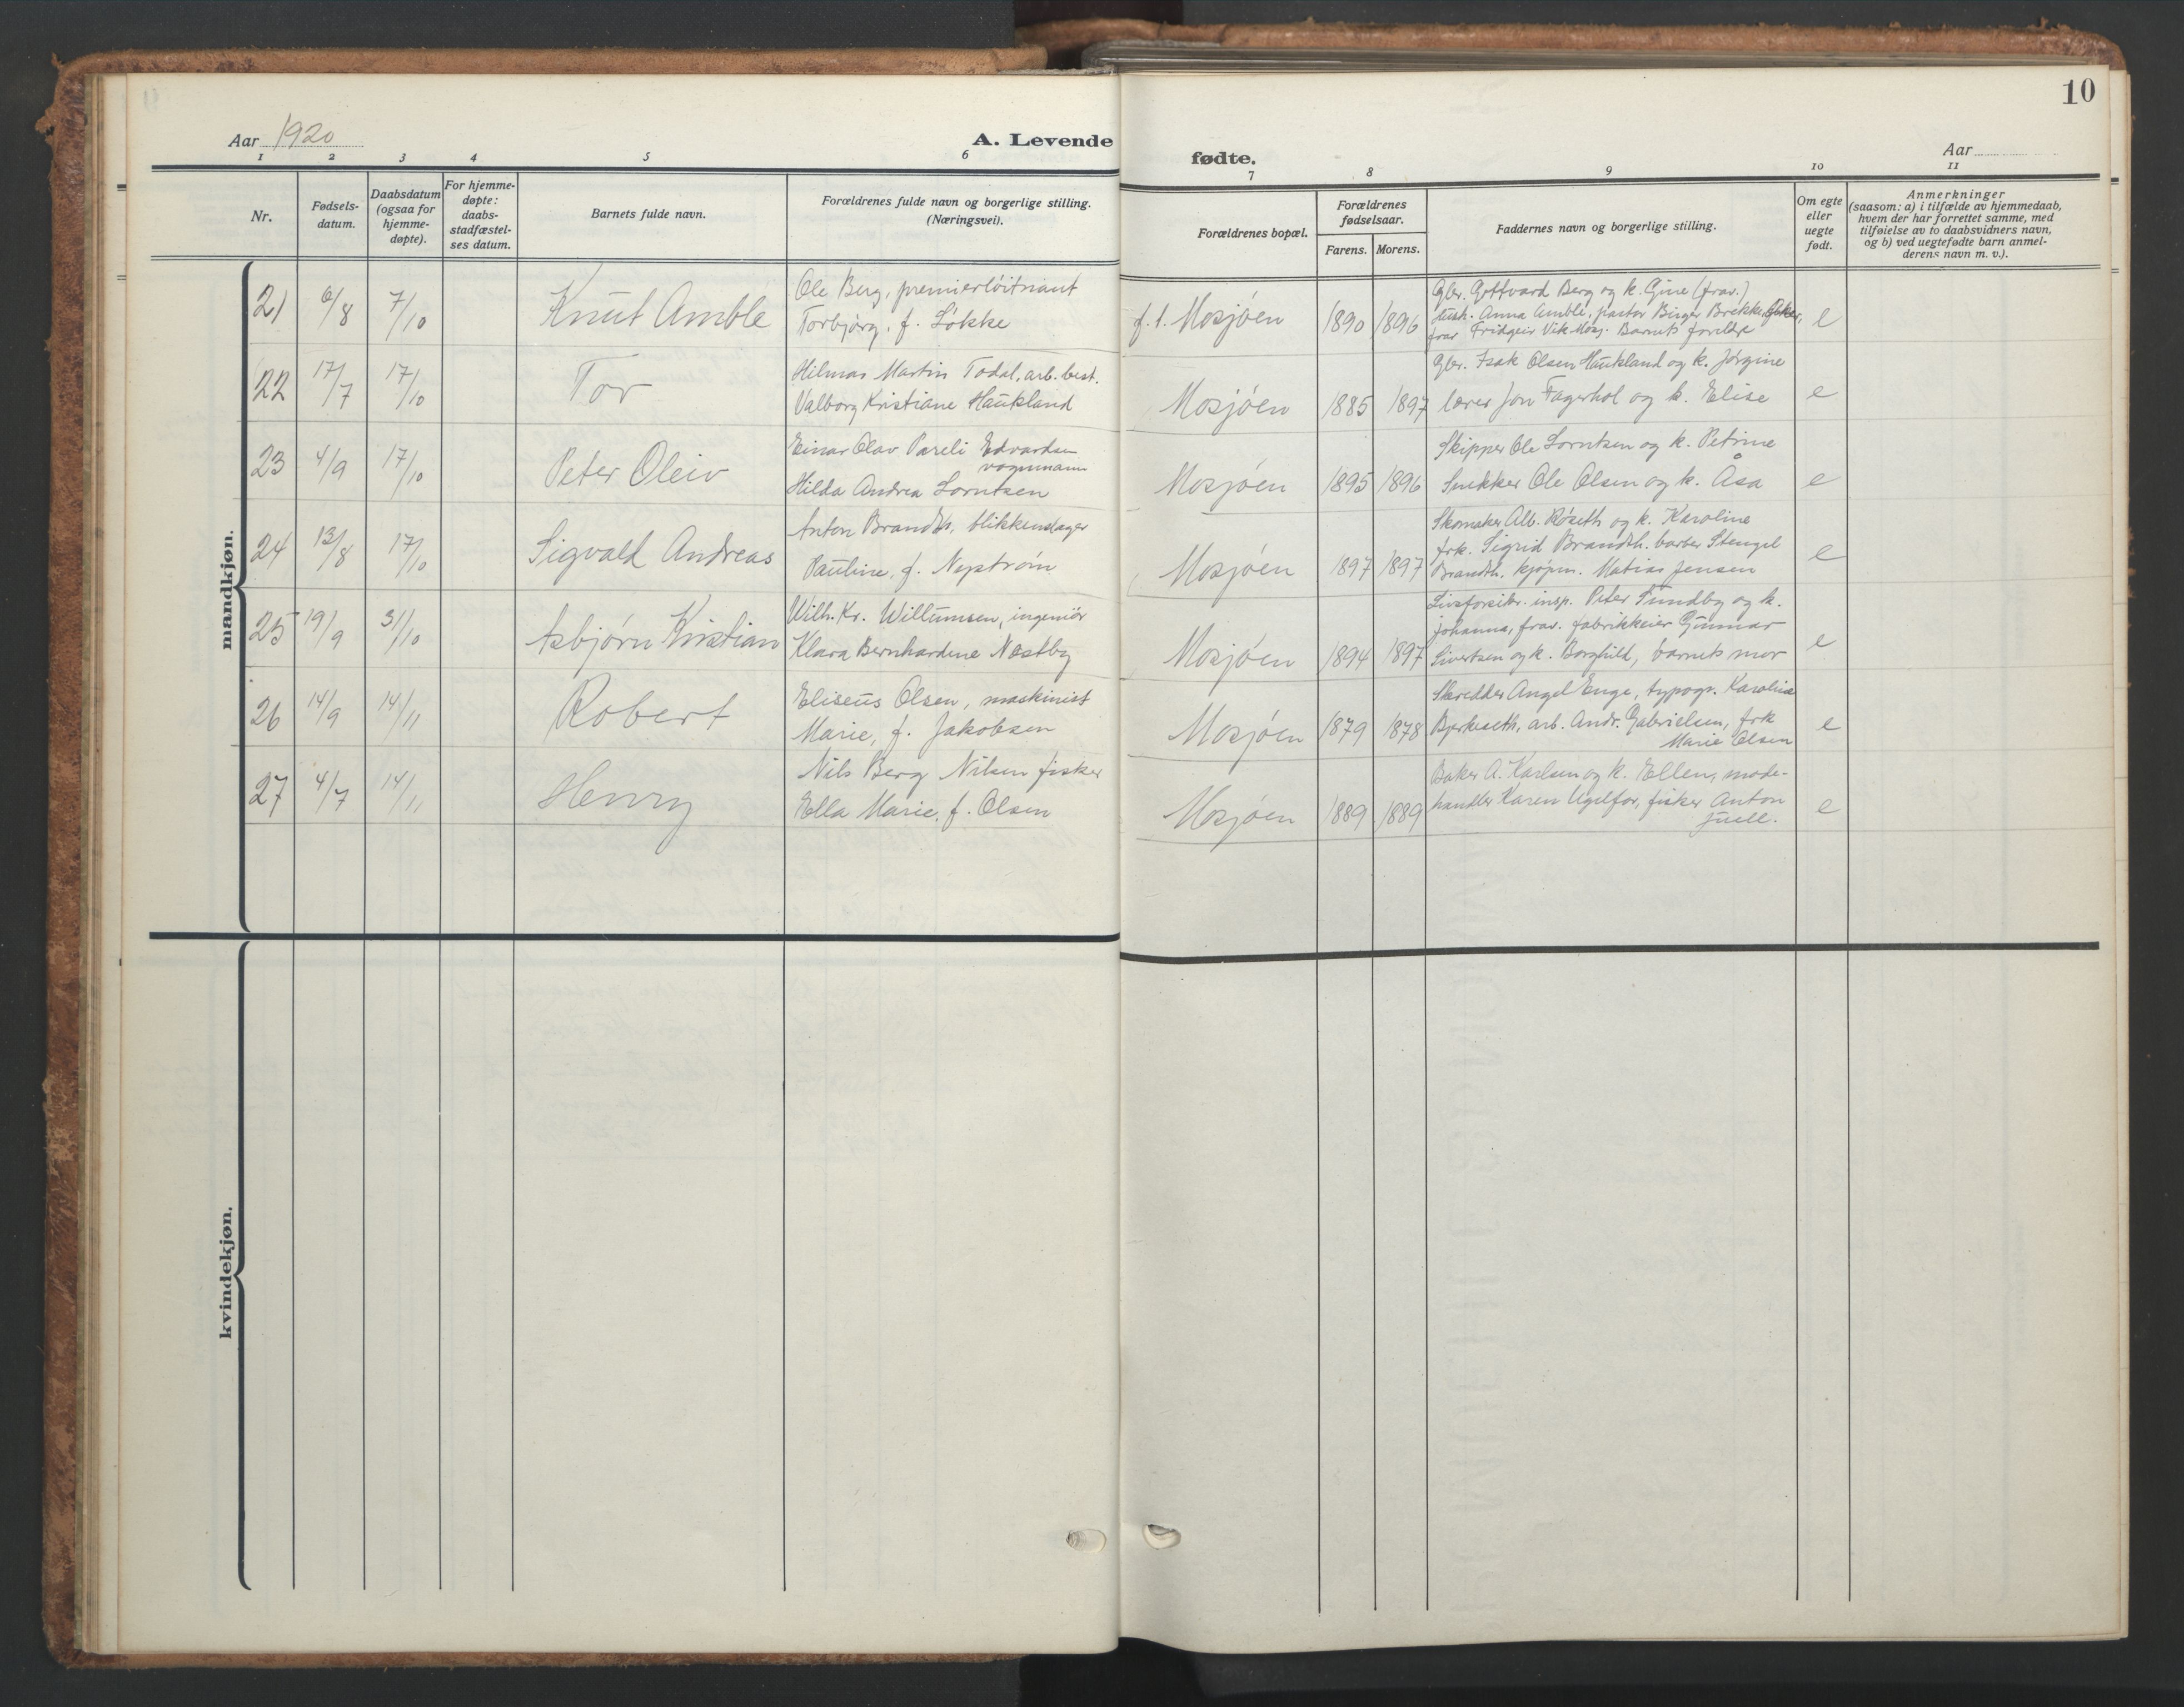 10
Aar 1920
A. Levende
fødte.
Aar
1 2 3 4 5 6
7 8 9 10 11
Nr.
Fødsels-
datum.
Daabsdatum
(ogsaa for
hjemme-
døpte).
For hjemme-
døpte:
daabs-
stadfæstel-
ses datum.
Barnets fulde navn.
Forældrenes fulde navn og borgerlige stilling.
(Næringsvei).
Forældrenes bopæl.
Forældrenes
fødselsaar.
Farens. Morens.
Faddernes navn og borgerlige stilling.
Om egte
eller
uegte
født.
Anmerkninger
(saasom: a) i tilfælde av hjemmedaab,
hvem der har forrettet samme, med
tilføielse av to daabsvidners navn,
og b) ved uegtefødte barn anmel-
derens navn m. v.).
mandkjøn.
21 6/8 7/10 Knut Amble
Ole Berg, premierløitnant
Torbjørg, f. Løkke
f. t. Mosjøen 1890 1896
Gbr. Gottvard Berg og k. Gine (frav.)
Anna Amble, pastor Birger Brekke,
frav Fridgeir Vik Mosj. Barnets foreldre
e
22 17/7 17/10 Tor
Hilmar Martin Todal, arb. best.
Valborg Kristiane Haukland
Mosjøen 1885 1897
Gbr. Isak Olsen Haukland og k. Jørgine
lærer Jon Fagerhol og k. Elise
e
23 4/9 17/10 Peter Oleiv
Einar Olav Pareli Edvardsen
vognmann
Hilda Andrea Lorntsen
Mosjøen 1895 1896
Skipper Ole Lorntsen og k. Petrine
Snekker Ole Olsen og k. Åsa
e
24 13/8 17/10 Sigvald Andreas
Anton Brandth, blikkenslager
Pauline, f. Nystrøm
Mosjøen 1897 1897
Skomaker Alb. Røseth og k. Karoline
frk. Sigrid Brandth. barber Stengel
Brandth, kjøpm. Matias Jensen
e
25 19/9 31/10 Asbjørn Kristian
Wilh. Kr. Willumsen, ingeniør
Klara Bernhardine Næstby
Mosjøen 1894 1897
Livsforsikr. insp. Peter Sundby og k.
Johanna, frav. fabrikkeier Gunnar
Sivertsen og k. Borghild, barnets mor
e
26 14/9 14/11 Robert
Eliseus Olsen, maskinist
Marie, f. Jakobsen
Mosjøen 1879 1878
Skredder Angel Enge, typogr. Karoline
Bjerkeseth, arb. Andr. Gabrielsen, frk
Marie Olsen
e
27 4/7 14/11 Henry
Nils Berg Nilsen fisker
Ella Marie, f. Olsen
Mosjøen 1889 1889
Baker A. Karlsen og k. Ellen, mode-
handler Karen Ugelfor, fisker Anton
Juell.
e
kvindekjøn.